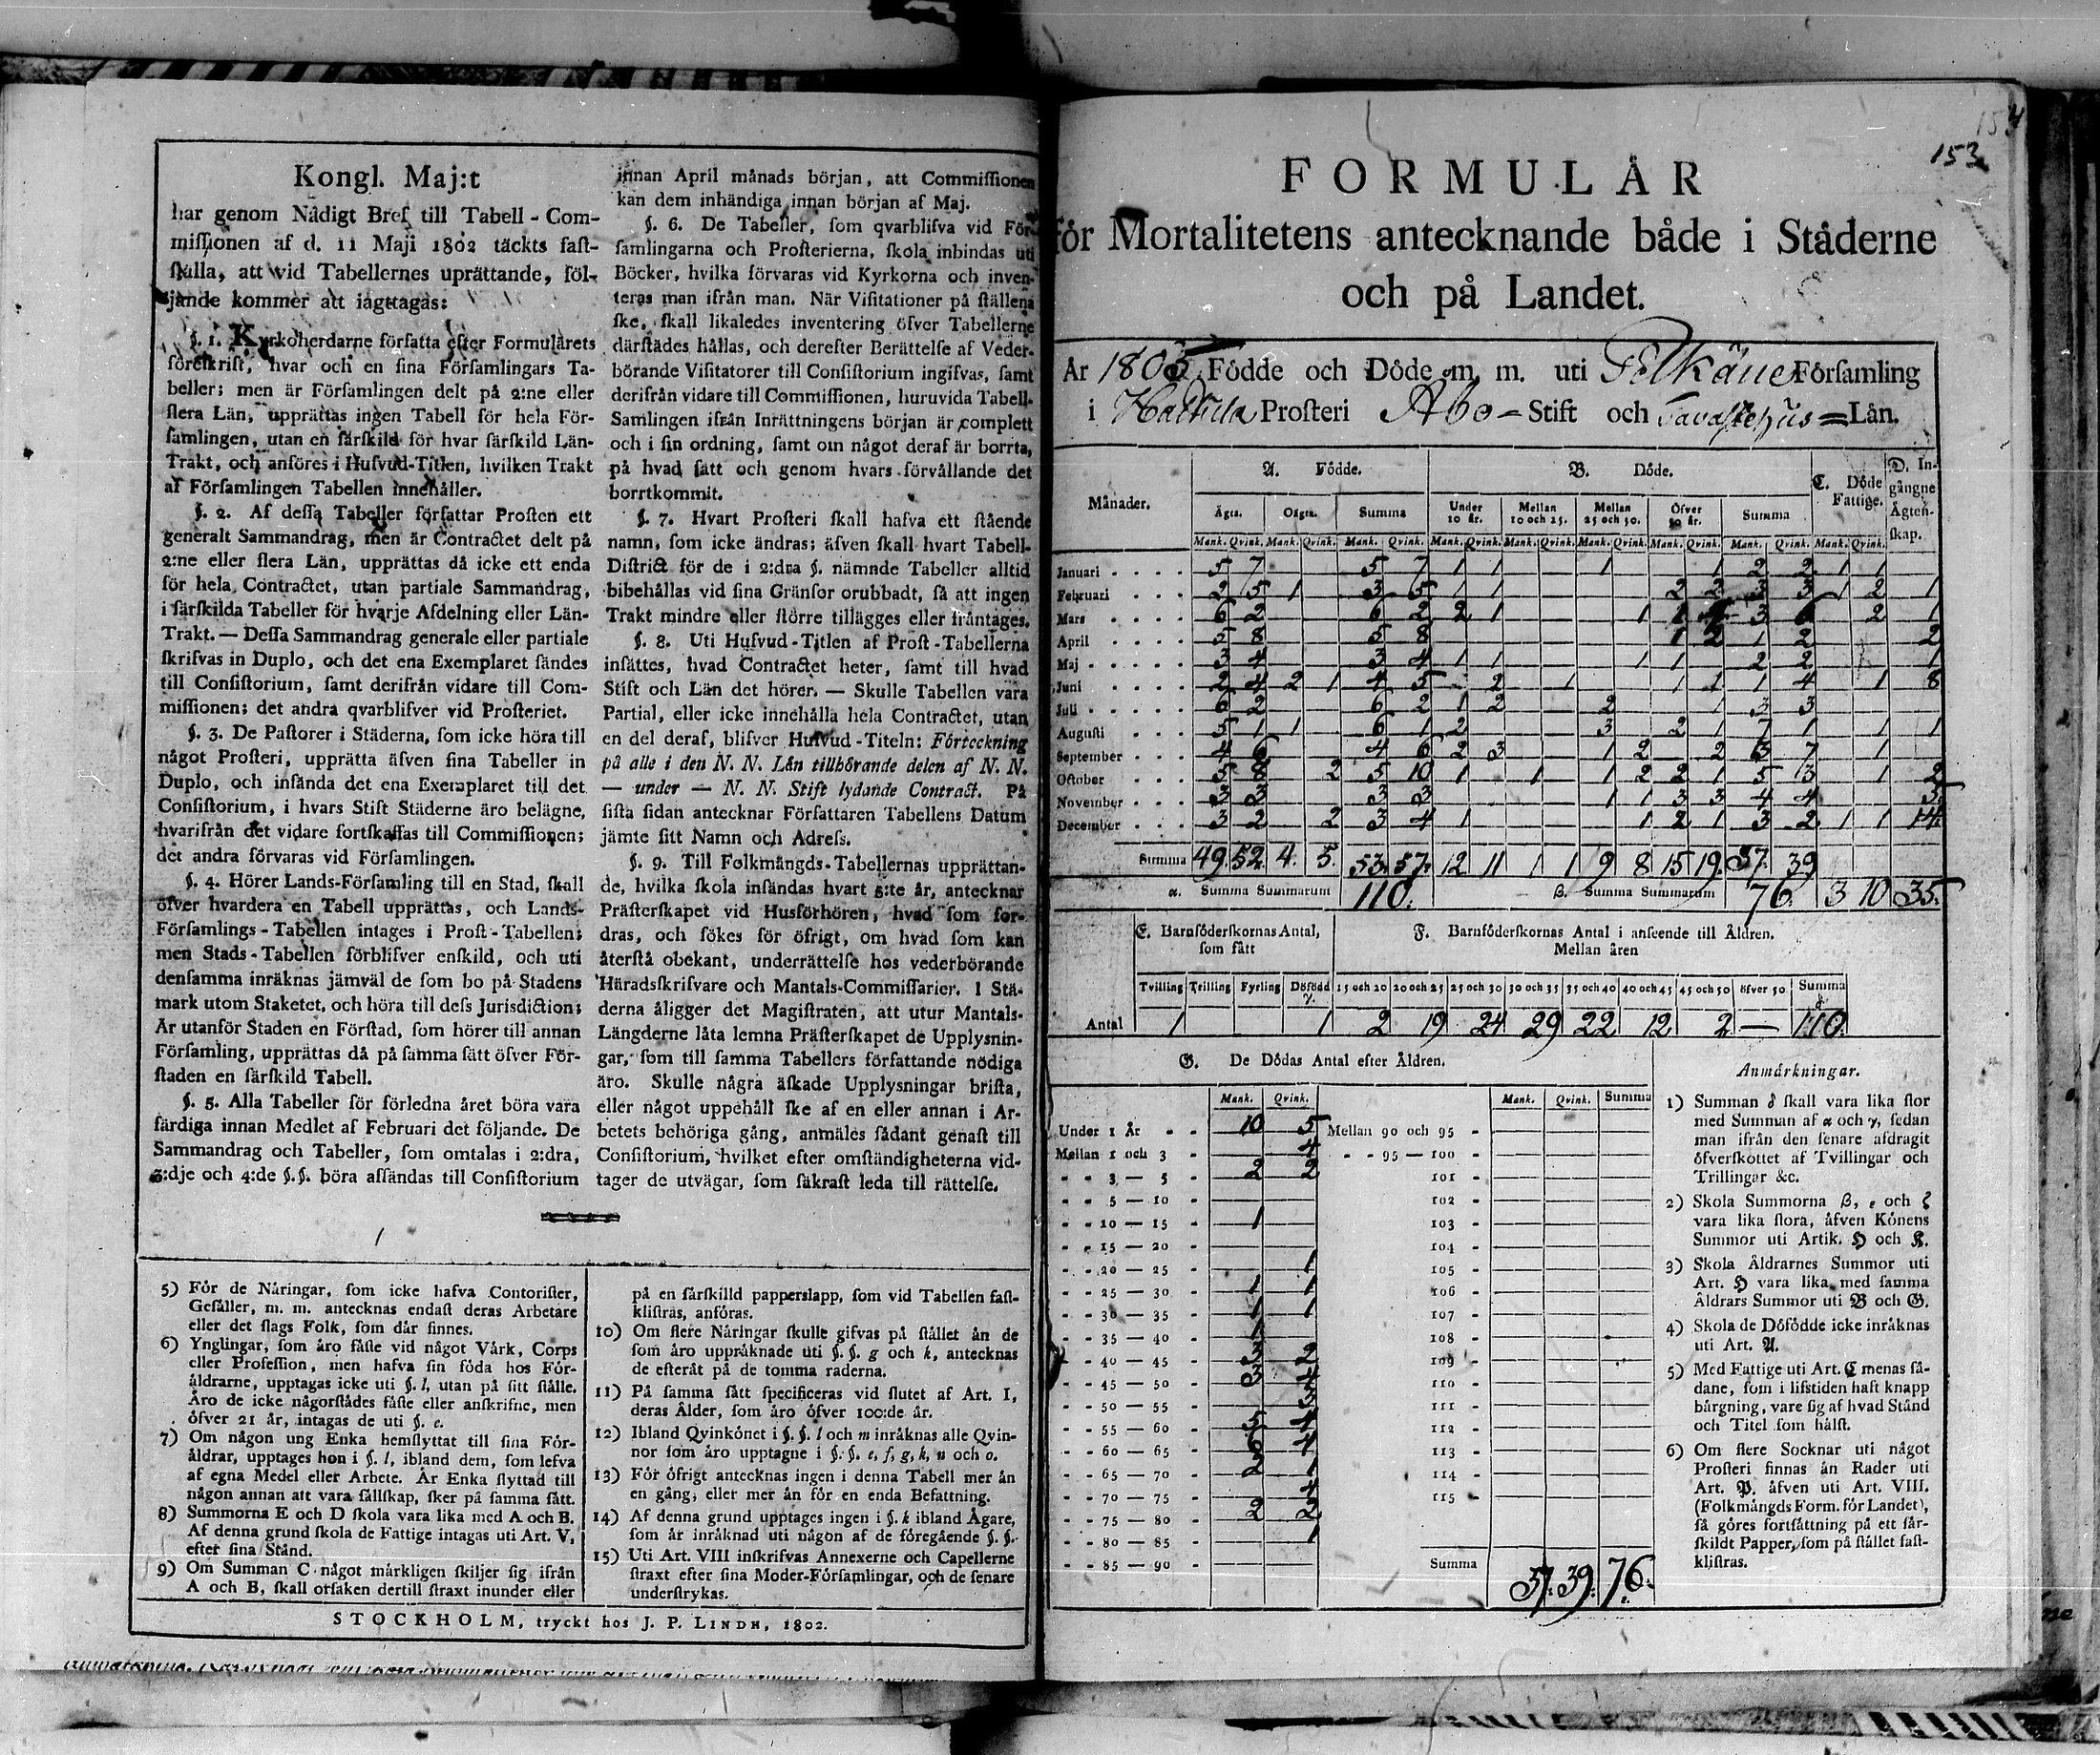 Kongl. Maj:t
har genom Nådigt Bref till Tabell-Com-
missionen af d. 11 Maji 1802 täckts fast-
ställa, att vid Tabellernes uprättande, föl-
jande kommer att iagttagas:
§. 1. Kyrkoherdarne författa efter Formulårets
föreskrift, hvar och en sina Församlingars Ta-
beller; men är Församlingen delt på 2:ne eller
flera Län, upprättas ingen Tabell för hela För-
samlingen, utan en särskild för hvar särskild Län-
Trakt, och anföres i Hufvud-Titlen, hvilken Trakt
af Församlingen Tabellen innehåller.
§. 2. Af dessa Tabeller författar Prosten ett
generalt Sammandrag, men är Contractet delt på
2:ne eller flera Län, upprättas då icke ett enda
för hela Contractet, utan partiale Sammandrag,
i särskilda Tabeller för hvarje Afdelning eller Län-
Trakt. — Dessa Sammandrag generale eller partiale
skrifvas in Duplo, och det ena Exemplaret sändes
till Consistorium, samt derifrån vidare till Com-
missionen; det andra qvarblifver vid Prosteriet.
§. 3. De Pastorer i Städerna, som icke höra till
något Prosteri, upprätta äfven sina Tabeller in
Duplo, och insända det ena Exemplaret till det
Consistorium, i hvars Stift Städerne äro belägne,
hvarifrån det vidare fortskaffas till Commissionen;
det andra förvaras vid Församlingen.
§. 4. Hörer Lands-Församling till en Stad, skall
öfver hvardera en Tabell upprättas, och Lands-
Församlings-Tabellen intages i Prost-Tabellen;
men Stads-Tabellen förblifver enskild, och uti
densamma inräknas jämväl de som bo på Stadens
mark utom Staketet, och höra till dess Jurisdiction;
Är utanför Staden en Förstad, som hörer till annan
Församling, upprättas då på samma sätt öfver För-
staden en särskild Tabell.
§. 5. Alla Tabeller för förledna året böra vara
färdiga innan Medlet af Februari det följande. De
Sammandrag och Tabeller, som omtalas i 2:dra,
3:dje och 4:de §.§. böra afsändas till Consistorium
innan April månads början, att Commissionen
kan dem inhändiga innan början af Maj.
§. 6. De Tabeller, som qvarblifva vid För-
samlingarna och Prosterierna, skola inbindas uti
Böcker, hvilka förvaras vid Kyrkorna och inven-
teras man ifrån man. När Visitationer på ställena
ske, skall likaledes inventering öfver Tabellerne
därstädes hållas, och derefter Berättelse af Veder-
börande Visitatorer till Consistorium ingifvas, samt
derifrån vidare till Commissionen, huruvida Tabell-
Samlingen ifrån Inrättningens början är complett
och i sin ordning, samt om något deraf är borrta,
på hvad sätt och genom hvars förvållande det
borrtkommit.
§. 7. Hvart Prosteri skall hafva ett stående
namn, som icke ändras; äfven skall hvart Tabell-
District för de i 2:dra §. nämnde Tabeller alltid
bibehållas vid sina Gränsor orubbadt, så att ingen
Trakt mindre eller större tillägges eller fråntages.
§. 8. Uti Hufvud-Titlen af Prost-Tabellerna
insättes, hvad Contractet heter, samt till hvad
Stift och Län det hörer. — Skulle Tabellen vara
Partial, eller icke innehålla hela Contractet, utan
en del deraf, blifver Hufvud-Titeln: Förteckning
på alle i den N. N. Län tillhörande delen af N. N.
— under — N. N. Stift lydande Contract. På
sista sidan antecknar Författaren Tabellens Datum
jämte sitt Namn och Adress.
§. 9. Till Folkmängds-Tabellernas upprättan-
de, hvilka skola insändas hvart 5:te år, antecknar
Prästerskapet vid Husförhören, hvad som for-
dras, och sökes för öfrigt, om hvad som kan
återstå obekant, underrättelse hos vederbörande
Häradsskrifvare och Mantals-Commissarier. I Stä-
derna åligger det Magistraten, att utur Mantals-
Längderne låta lemna Prästerskapet de Upplysnin-
gar, som till samma Tabellers författande nödiga
äro. Skulle några äskade Upplysningar brista,
eller något uppehåll ske af en eller annan i Ar-
betets behöriga gång, anmäles sådant genast till
Consistorium, hvilket efter omständigheterna vid-
tager de utvägar, som säkrast leda till rättelse.
5) För de Näringar, som icke hafva Contorister,
Gesäller, m. m. antecknas endast deras Arbetare
eller det slags Folk, som där finnes.
6) Ynglingar, som äro fäste vid något Värk, Corps
eller Profession, men hafva sin föda hos För-
äldrarne, upptagas icke uti §. l, utan på sitt ställe.
Äro de icke någorstädes fäste eller anskrifne, men
öfver 21 år, intagas de uti §. e.
7) Om någon ung Enka hemflyttat till sina För-
äldrar, upptages hon i §. l, ibland dem, som lefva
af egna Medel eller Arbete. Är Enka flyttad till
någon annan att vara sällskap, sker på samma sätt.
8) Summorna E och D skola vara lika med A och B.
Af denna grund skola de Fattige intagas uti Art. V,
efter sina Stånd.
9) Om Summan C något märkligen skiljer sig ifrån
A och B, skall orsaken dertill straxt inunder eller
på en särskilld papperslapp, som vid Tabellen fast-
klistras, anföras.
10) Om flere Näringar skulle gifvas på stället än de
som äro uppräknade uti §. §. g och k, antecknas
de efteråt på de tomma raderna.
11) På samma sätt specificeras vid slutet af Art. I,
deras Ålder, som äro öfver 100:de år.
12) Ibland Qvinkönet i §. §. l och m inräknas alle Qvin-
nor som äro upptagne i §. §. e, f, g, k, n och o.
13) För öfrigt antecknas ingen i denna Tabell mer än
en gång, eller mer än för en enda Befattning.
14) Af denna grund upptages ingen i §. k ibland Ägare,
som är inräknad uti någon af de föregående §. §.
15) Uti Art. VIII inskrifvas Annexerne och Capellerne
straxt efter sina Moder-Församlingar, och de senare
understrykas.
STOCKHOLM, tryckt hos J. P. LINDH, 1802.
153
FORMULÅR
för Mortalitetens antecknande både i Ståderne
och på Landet.
År 1805 Födde och Döde m. m. uti Pelkäne Församling
i Prosteri Abo Stift och Tavastehus Län.
Månader. A. Födde. B. Döde. C. Döde Fattige. D. Ingångne Ägtenskap.
Ägta. Oägta. Summa Under 10 år. Mellan 10 och 25. Mellan 25 och 50. Öfver 50 år. Summa
Mank. Qvink. Mank. Qvink. Mank. Qvink. Mank. Qvink. Mank. Qvink. Mank. Qvink. Mank. Qvink. Mank. Qvink. Mank. Qvink.
Januari 5 7 5 7 1 1 1 1 2 2 1 1
Februari 2 5 1 3 5 1 1 2 2 3 3 1 2 1
Mars 6 2 6 2 2 1 1 1 3 6 2 1
April 5 8 5 8 1 2 1 2 2
Maj 3 4 3 4 1 1 1 1 2 2 1
Juni 2 4 2 1 4 5 2 1 1 1 1 4 1 8
Juli 6 2 6 2 1 2 2 1 3 3
Augusti 5 1 1 6 1 2 3 2 1 7 1 1 1
September 4 6 4 6 2 3 1 2 2 3 7 1
October 5 8 2 5 10 1 1 1 2 2 1 5 3 1 2
November 3 3 3 3 1 1 3 3 4 4 5
December 3 2 2 3 4 1 1 2 1 3 2 1 1 14
Summa 49. 52 4. 5. 53. 57. 12 11 1 1 9 8 15 19. 37. 39
α. Summa Summarum 110. β. Summa Summarum 76. 3 10 35.
E. Barnföderskornas Antal, som fått
F. Barnföderskornas Antal i anseende till Åldren.
Mellan åren
Tvilling Trilling Fyrling Dödfödd γ. 15 och 20 20 och 25 25 och 30 30 och 35 35 och 40 40 och 45 45 och 50 öfver 50 Summa δ
Antal 1 1 2 19 24 29 22 12 2 — 110.
G. De Dödas Antal efter Åldren.
Mank. Qvink. Mank. Qvink. Summa
Under 1 År 10 5 Mellan 90 och 95
Mellan 1 och 3 4 95 — 100
3 — 5 2 2 101
5 — 10 102
10 — 15 1 103
15 — 20 104
20 — 25 1 105
25 — 30 1 1 106
30 — 35 1 1 107
35 — 40 1 108
40 — 45 2 109
45 — 50 110
50 — 55 111
55 — 60 5 112
60 — 65 4 113
65 — 70 2 114
70 — 75 115
75 — 80 2 2
80 — 85 1
85 — 90 Summa 37. 39. 76.
Anmärkningar.
1) Summan δ skall vara lika stor
med Summan af α och γ, sedan
man ifrån den senare afdragit
öfverskottet af Tvillingar och
Trillingar &c.
2) Skola Summorna β, ε och ζ
vara lika stora, äfven Könens
Summor uti Artik. H och K.
3) Skola Äldrarnes Summor uti
Art. H vara lika med samma
Åldrars Summor uti B och G.
4) Skola de Dödfödde icke inräknas
uti Art. A.
5) Med Fattige uti Art. C menas så-
dane, som i lifstiden haft knapp
bärgning, vare sig af hvad Stånd
och Titel som hälst.
6) Om flere Socknar uti något
Prosteri finnas än Rader uti
Art. P. äfven uti Art. VIII.
(Folkmängds Form. för Landet),
så göres fortsättning på ett sär-
skildt Papper, som på stället fast-
klistras.